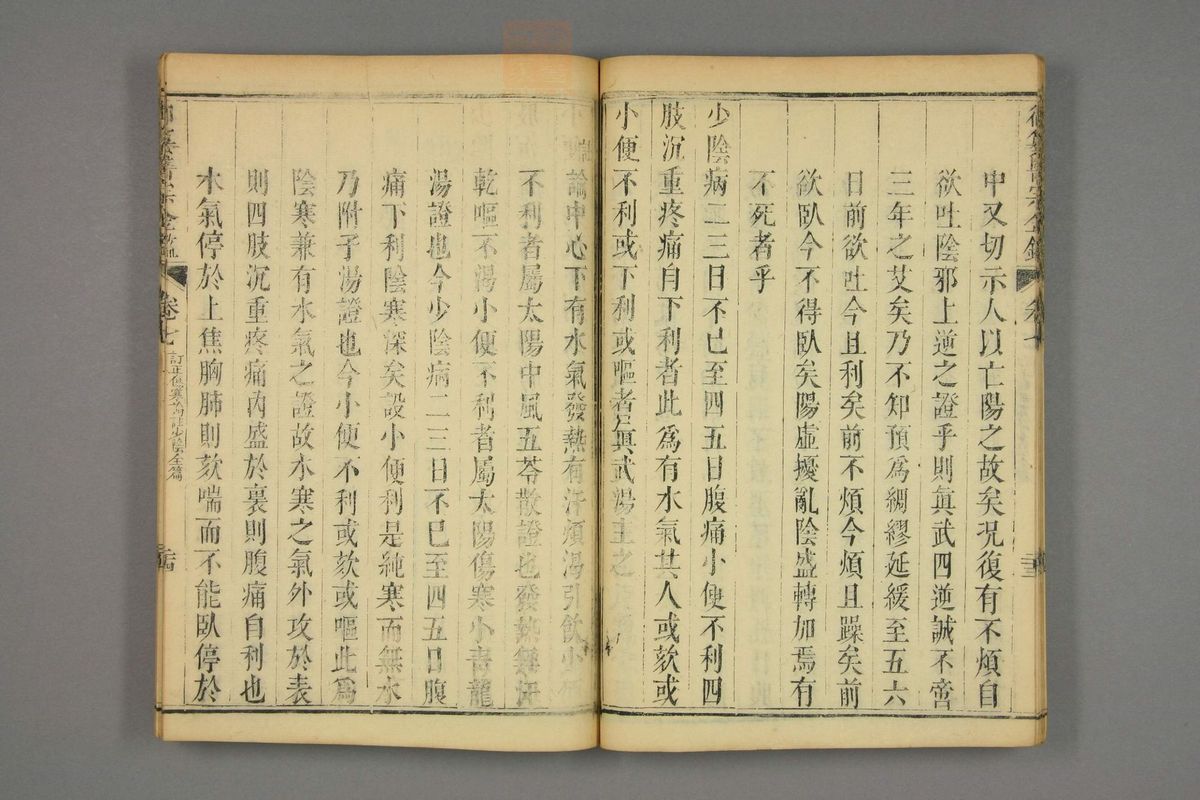 御纂醫宗金鑑 卷七
中又切示人以亡陽之故矣況復有不煩自
欲吐陰邪上逆之證乎則眞武四逆誠不啻
三年之艾矣乃不知預爲綢繆延緩至五六
日前欲吐今且利矣前不煩今煩且躁矣前
欲臥今不得臥矣陽虛擾亂陰盛轉加焉有
不死者乎
少陰病二三日不已至四五日腹痛小便不利四
肢沉重疼痛自下利者此爲有水氣其人或欬或
小便不利或下利或嘔者眞武湯主之
論中心下有水氣發熱有汗煩渴引飲小便
不利者屬太陽中風五苓散證也發熱無汗
乾嘔不渴小便不利者屬太陽傷寒小青龍
湯證也今少陰病二三日不已至四五日腹
痛下利陰寒深矣設小便利是純寒而無水
乃附子湯證也今小便不利或欬或嘔此爲
陰寒兼有水氣之證故水寒之氣外攻於表
則四肢沉重疼痛內盛於裏則腹痛自利也
水氣停於上焦胸肺則欬喘而不能臥停於
御纂醫宗金鑑 卷七 訂正傷寒論註少陰全篇